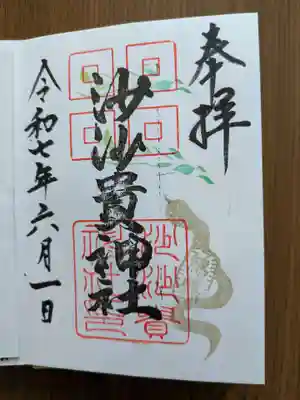 奉拝
沙沙貴神社
令和七年六月一日
沙沙貴
神社印